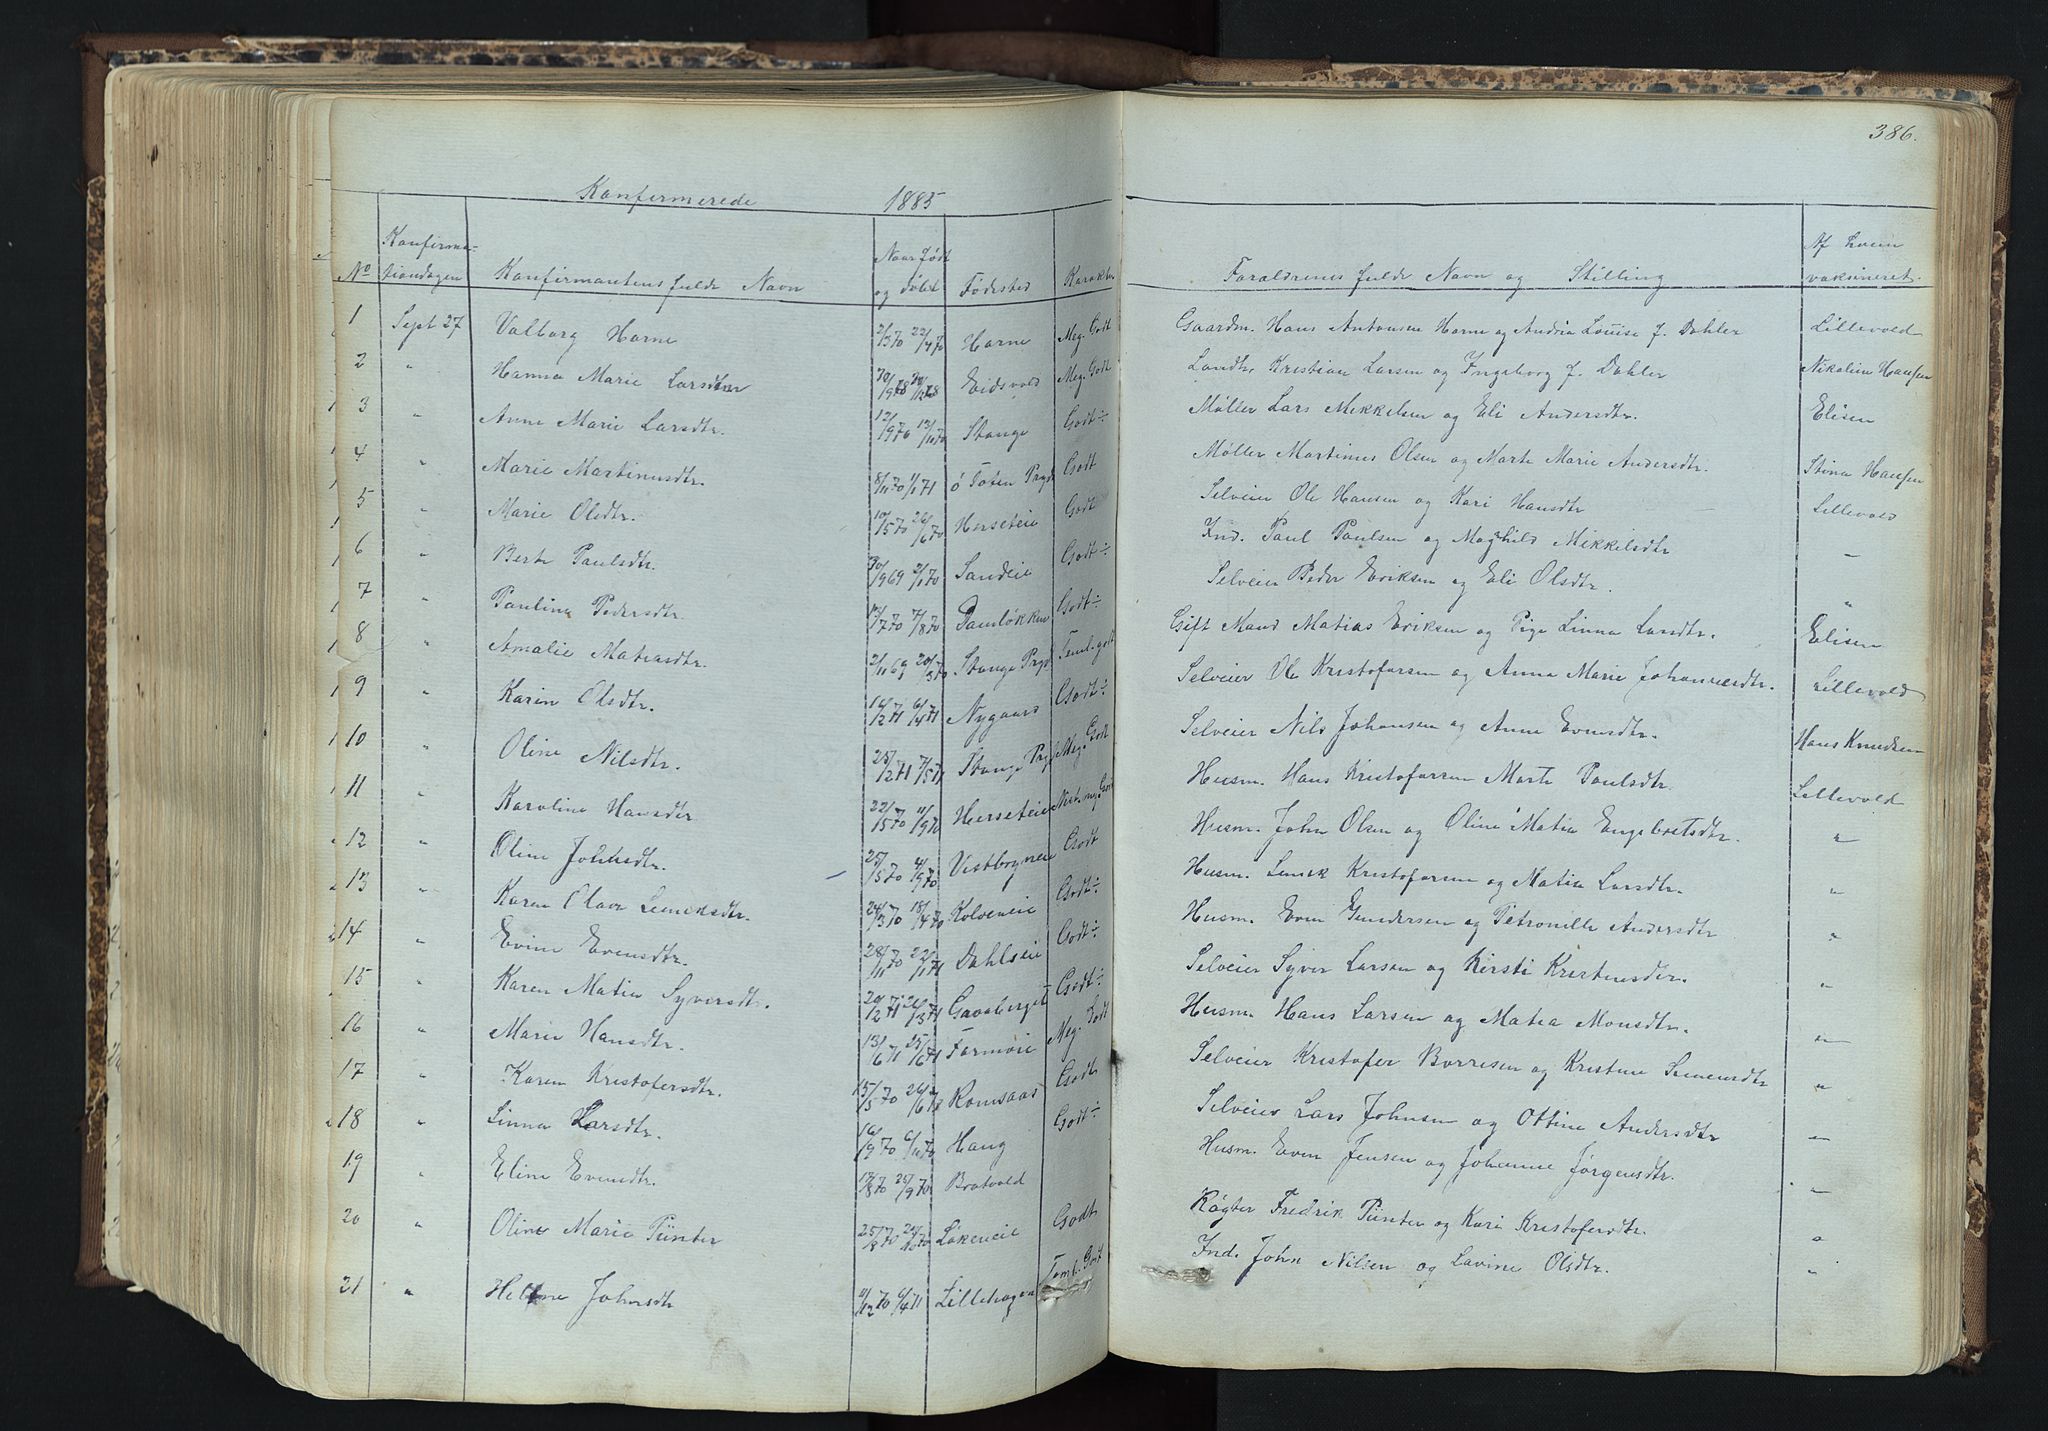 386.
Konfirmerede 1885
No Konfirmationsdagen Konfirmantens fulde Navn Naar født og døbt Fødested Karakter Forældrenes fulde Navn og Stilling Af hvem vaksineret
1 Sept 27 Valborg Horne 2/3 70 22/4 70 Horne Meg. Godt Gaardm. Hans Antonsen Horne og Andria Louise f. Dahler Lillevold
2 " Hanna Marie Larsdtr Eidsvold Meg. Godt Landh. Kristian Larsen og Ingeborg f. Dahler Nikoline Hansen
3 " Anne Marie Larsdtr. 12/9 70 13/11 70 Stange Godt÷ Møller Lars Mikkelsen og Eli Andersdtr. Elisen
4 " Marie Martinusdtr. 8/11 70 1/1 71 Ø Toten Prgd Godt Møller Martinus Olsen og Marte Marie Andersdtr. Stina Hansen
5 " Marie Olsdtr. 10/5 70 26/6 70 Horseteie Godt Selveier Ole Hansen og Kari Hansdtr Lillevold
6 " Berte Paulsdtr. 30/9 69 2/1 70 Sandeie Godt÷ Ind. Paul Paulsen og Maghild Mikkelsdtr —
7 " Pauline Pedersdtr. 12/7 70 7/8 70 Damløkken Godt÷ Selveier Peder Eriksen og Eli Olsdtr. "
8 " Amalie Matiasdtr. 2/11 69 20/3 70 Stange Prgd Teml. godt Gift Mand Matias Eriksen og Pige Linna Larsdtr. Elisen
9 " Karin Olsdtr. 16/2 71 6/4 71 Nygaard Godt÷ Selveier Ole Kristofersen og Anna Marie Johannesdtr. Lillevold
10 " Oline Nilsdtr. 25/2 71 7/5 71 Stange Prgd Meg. Godt Selveier Nils Johansen og Anne Evensdtr. Hans Knudsen
11 " Karoline Hansdtr 22/5 70 11/9 70 Horseteie Næst. meg. Godt Husm. Hans Kristofersen Marte Paulsdtr. Lillevold
12 " Oline Johnsdtr. 25/5 70 4/9 70 Vestbyneie Godt Husm. John Olsen og Oline Matia Engebretsdtr. "
13 " Karen Olava Semeksdtr. 24/3 70 18/4 70 Kolveneie Godt÷ Husm. Semek Kristofersen og Matia Larsdtr. "
14 " Evine Evensdtr. 28/11 70 22/1 71 Dahlseie Godt÷ Husm. Even Gundersen og Petronille Andersdtr "
15 " Karen Matia Syversdtr. 20/2 71 26/3 71 Gavaberget Godt÷ Selveier Syver Larsen og Kirsti Kristensdtr. "
16 " Marie Hansdtr. 13/6 71 25/6 71 Formoeie Meg. Godt Husm. Hans Larsen og Matea Monsdtr. "
17 " Karen Kristofersdtr. 15/5 70 26/6 Romsaas Godt Selveier Kristofer Borresen og Kristine Simensdtr "
18 " Linna Larsdtr. 16/9 70 6/11 70 Haug Godt÷ Selveier Lars Johnsen og Ottine Andersdtr "
19 " Eline Evensdtr. 17/8 70 25/9 70 Brotvold Husm. Even Jensen og Johanne Jørgensdtr. "
20 " Oline Marie Pünter Løkeneie Godt Røgter Fredrik Pünter og Kari Kristofersdtr. "
21 " Helene Johnsdtr 11/12 70 6/4 71 Lillehagen Teml. Godt Ind. John Nilsen og Lavine Olsdtr. "